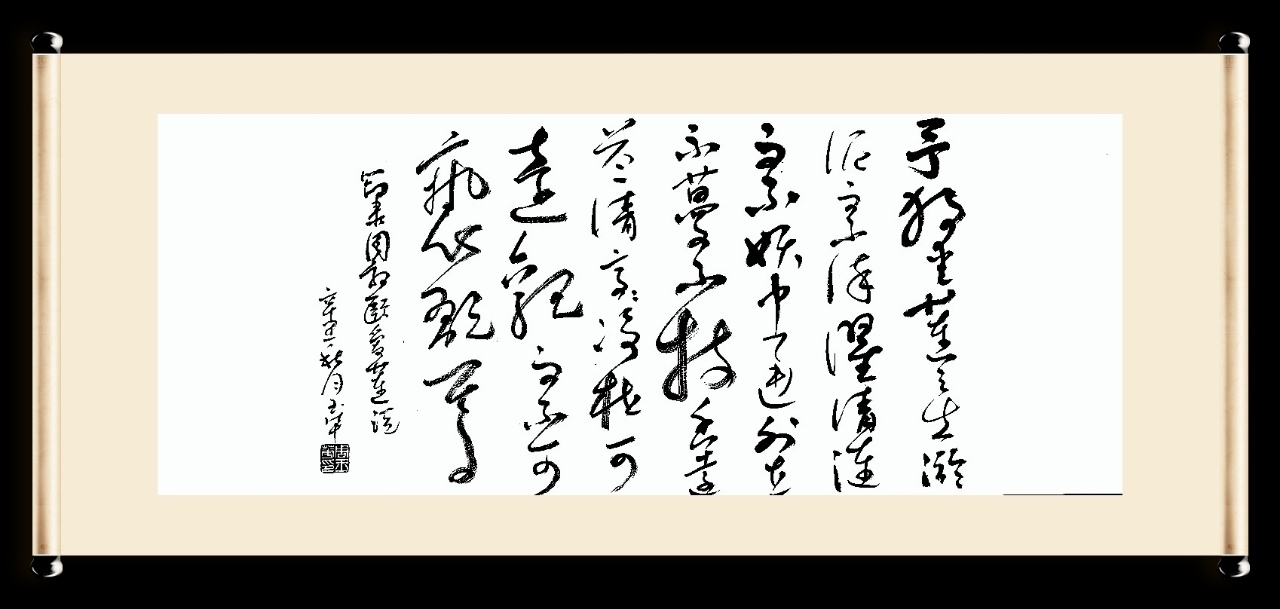 予獨愛蓮之出淤
泥而不染濯清漣
而不妖中通外直
不蔓不枝香遠
益清亭亭淨植可
遠觀而不可
褻翫焉
節錄周敦頤愛蓮說
辛丑秋月